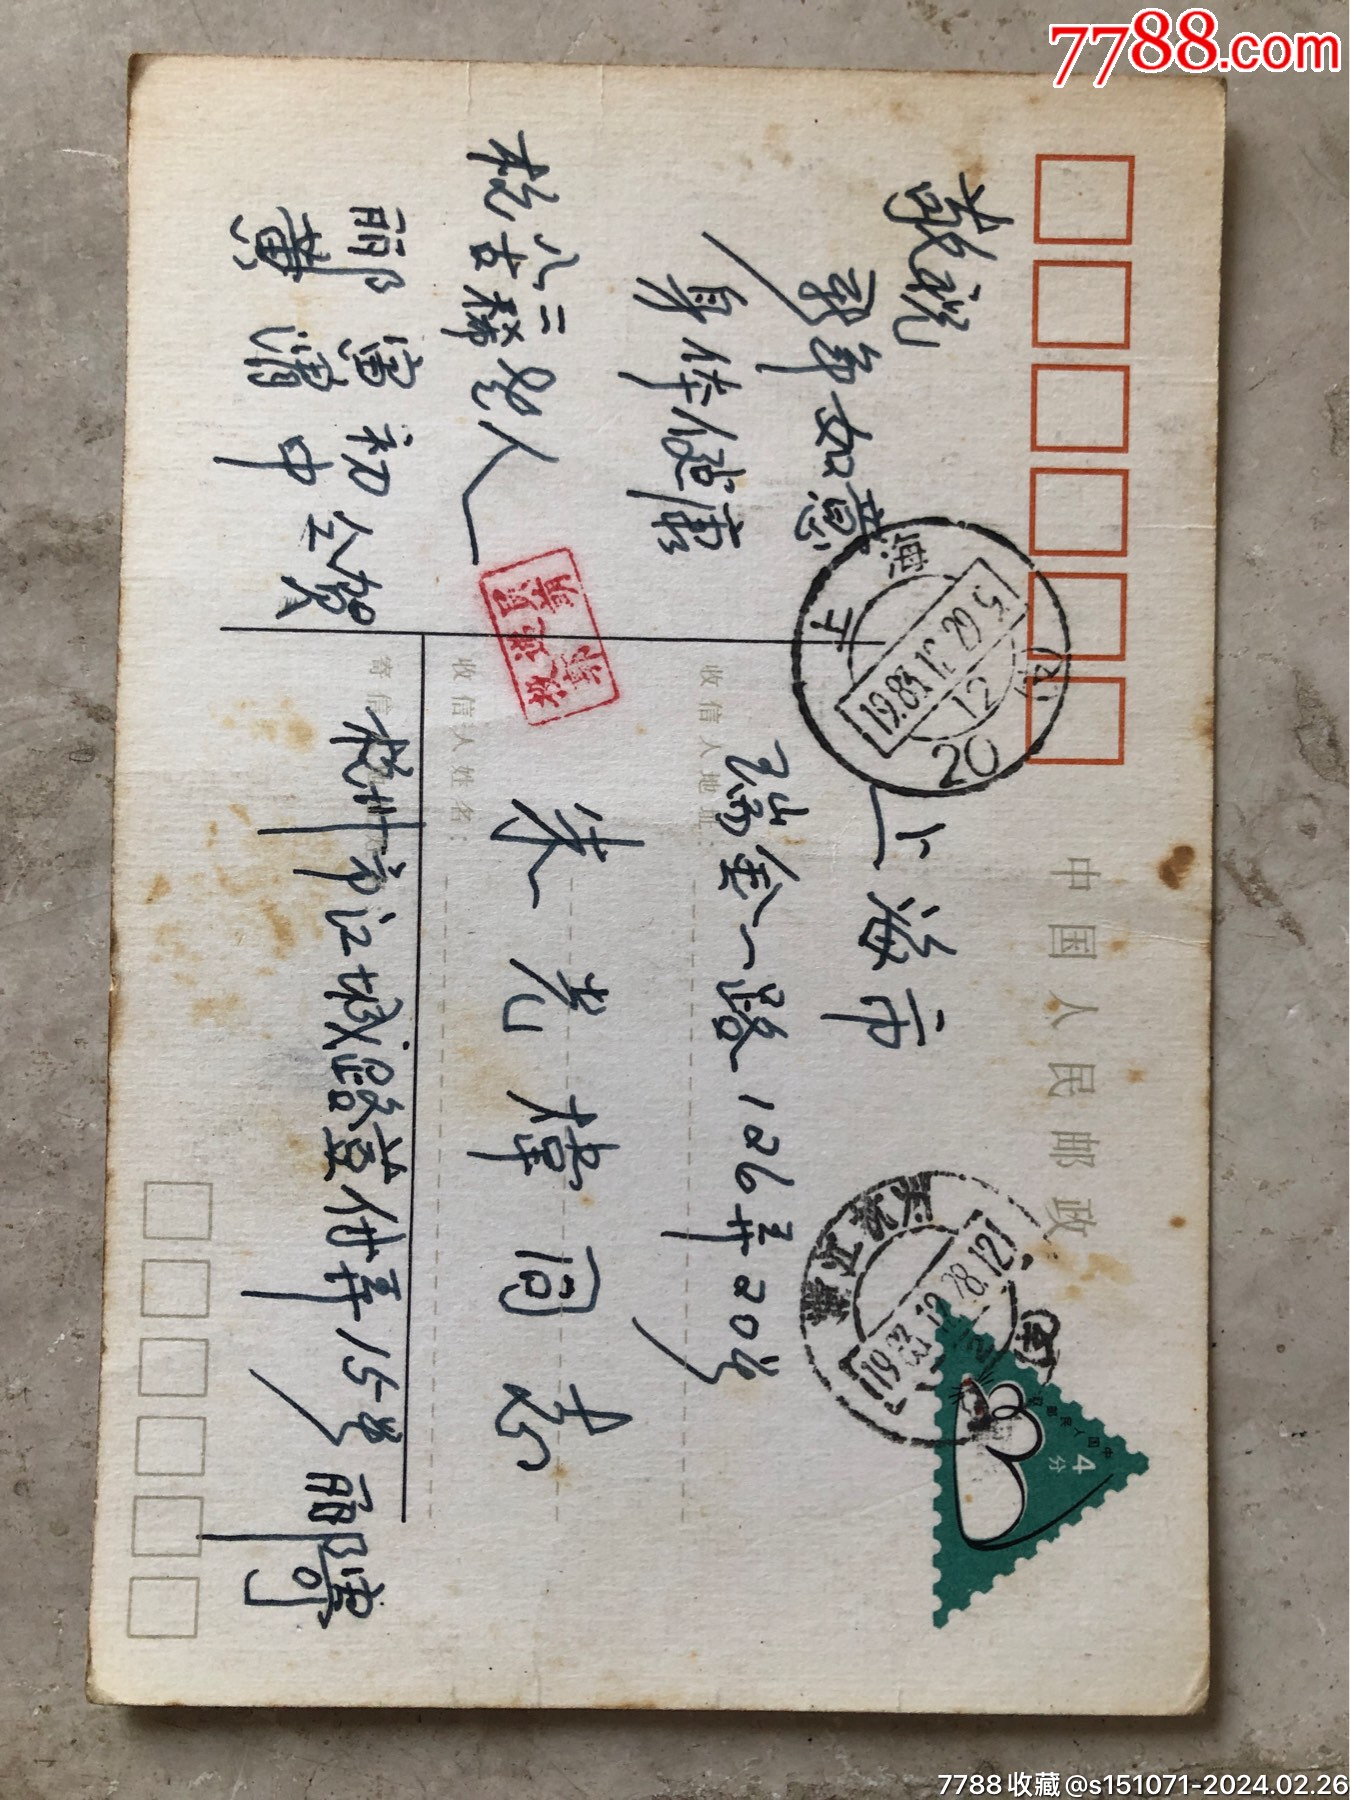 7788.com
中国人民邮政
敬祝
新年如意
身体健康
杭八二
古稀老人
郦寅初仝贺
黄涓中
上海
1983.12.29.5
12
20
浙江杭州
1983.12.28.12
中国人民邮政
4
分
上海市
收信人地址:
瑞金一路126弄20号
收信人姓名:
朱光烽同志
寄信人
杭州市江城路壹付弄15号 郦寄
7788收藏@s151071-2024.02.26